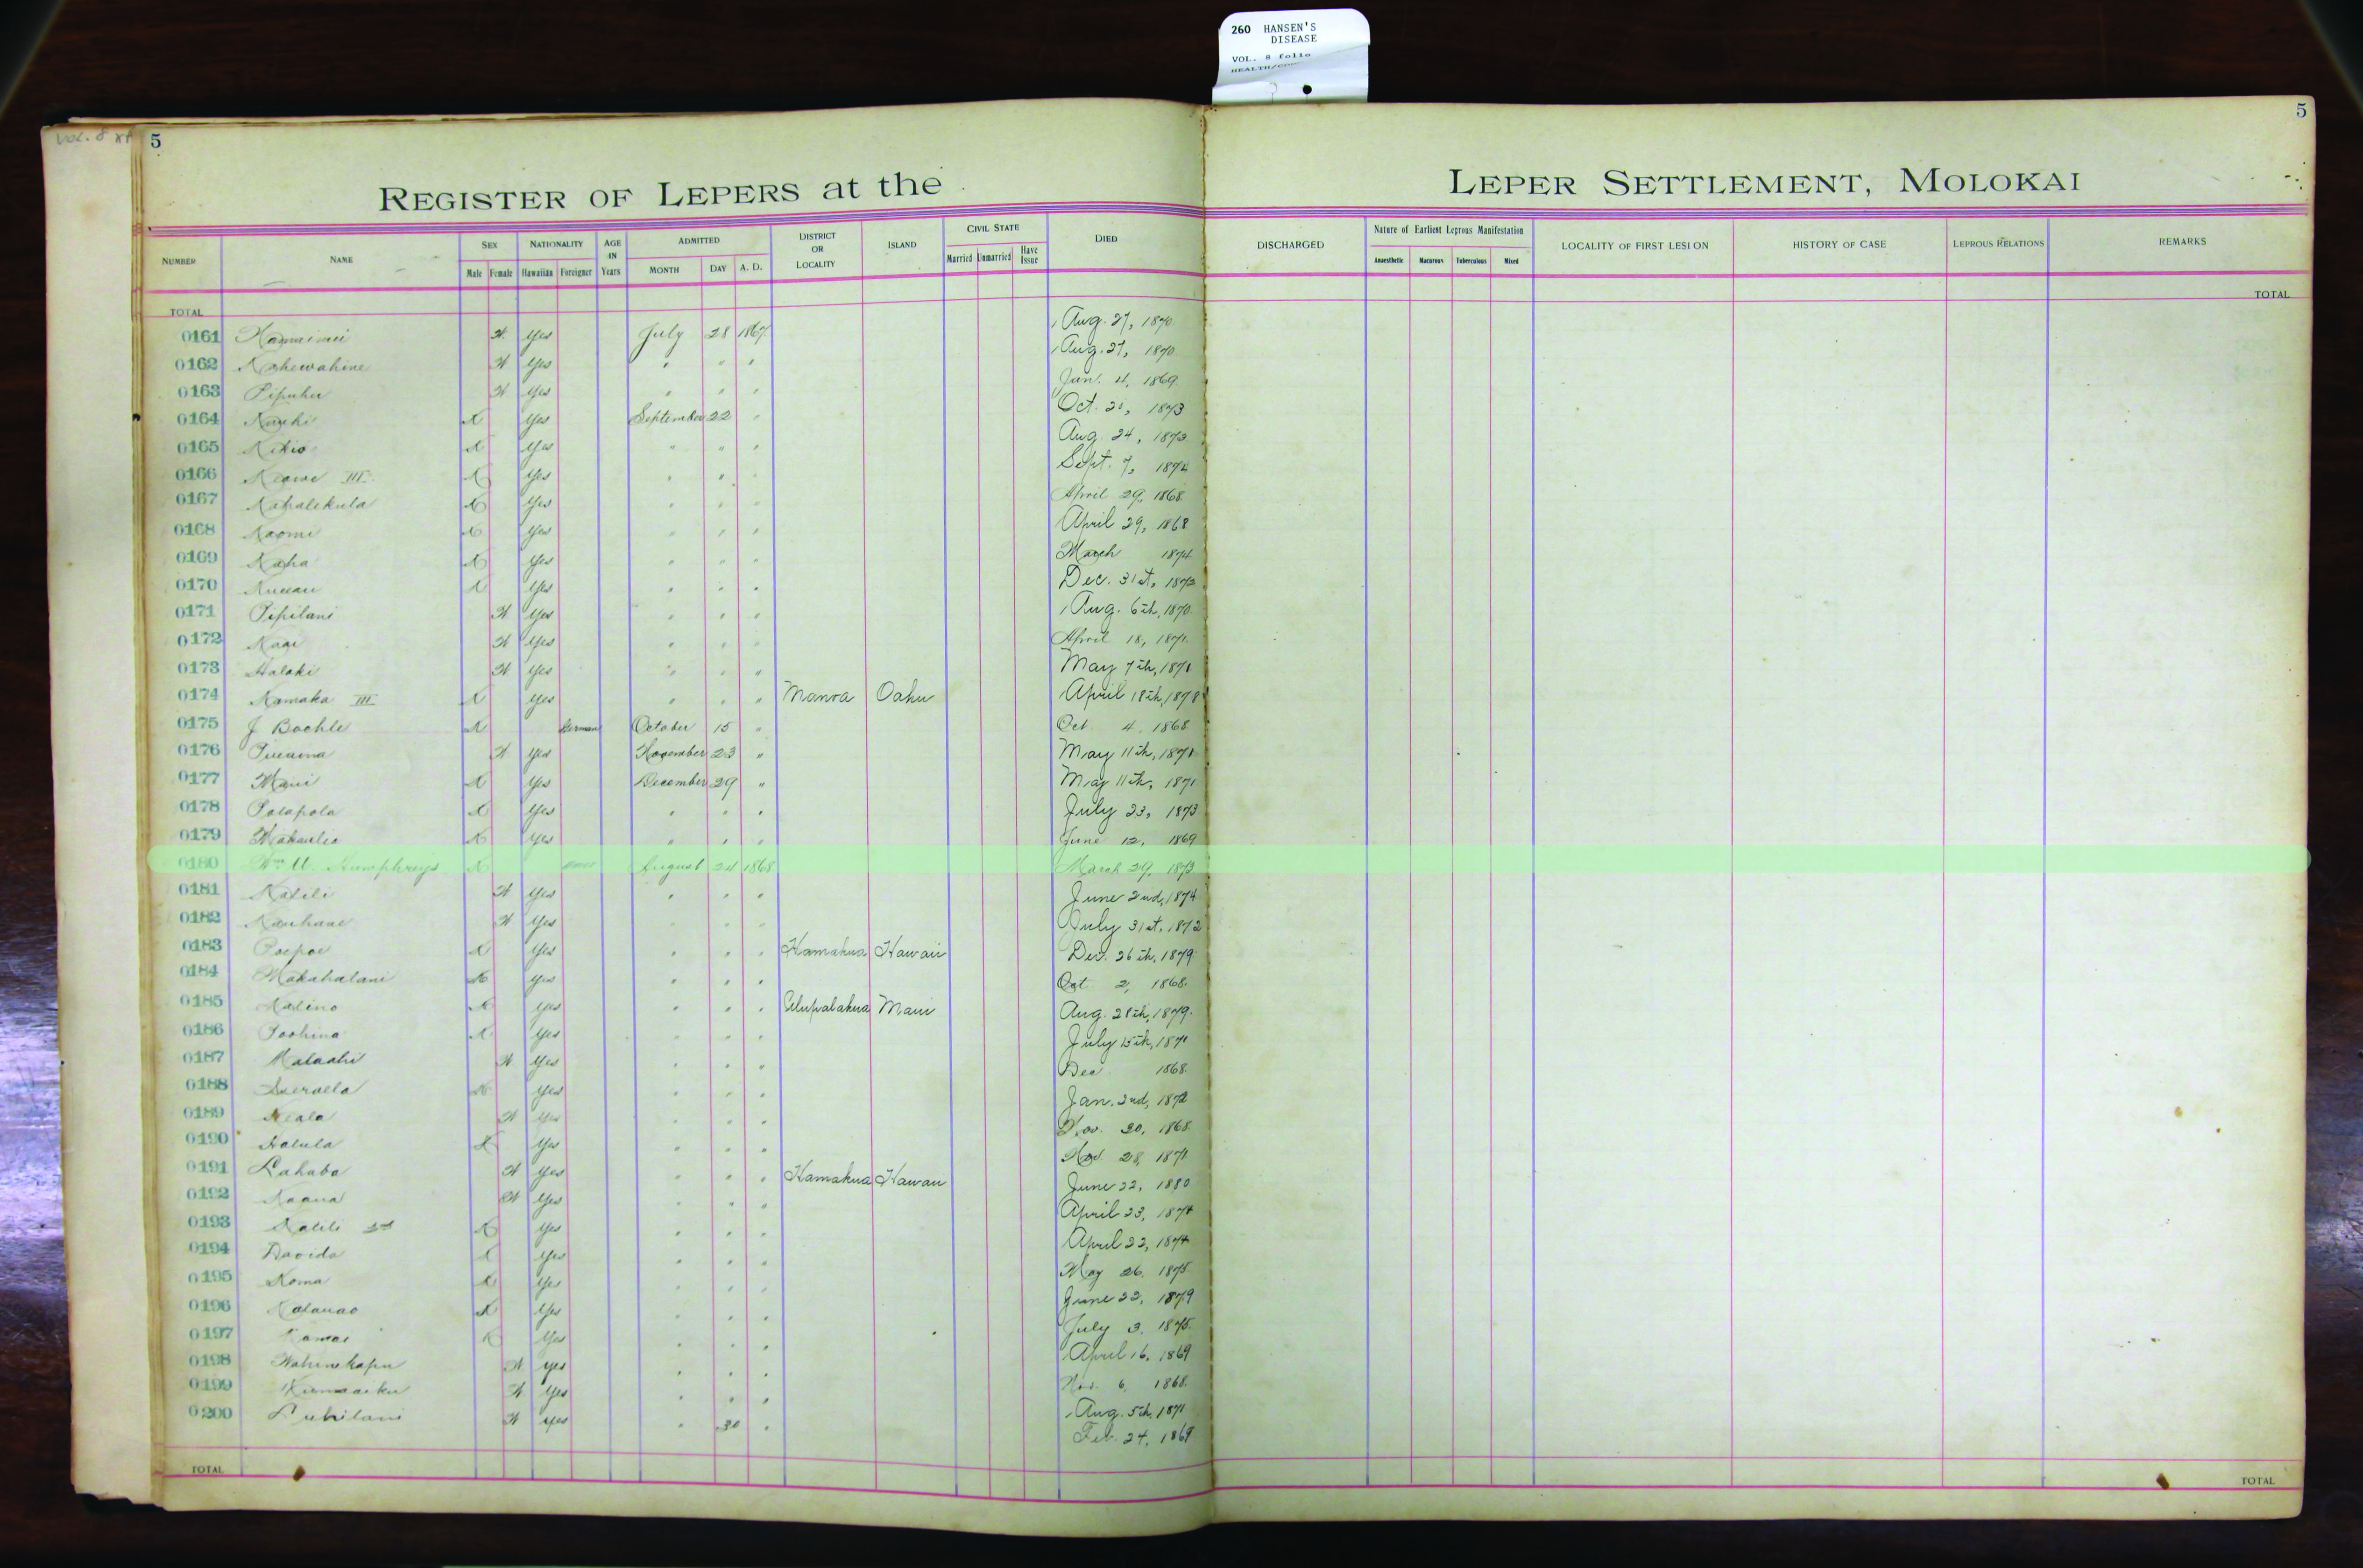 260 HANSEN'S
DISEASE
VOL. 8 folio
VOL. 8
5
5
REGISTER OF LEPERS at the LEPER SETTLEMENT, MOLOKAI
NUMBER NAME SEX NATIONALITY AGE IN Years ADMITTED DISTRICT OR LOCALITY ISLAND CIVIL STATE DIED DISCHARGED Nature of Earliest Leprous Manifestation LOCALITY OF FIRST LESION HISTORY OF CASE LEPROUS RELATIONS REMARKS
Male Female Hawaiian Foreigner MONTH DAY A. D. Married Unmarried Have Issue Anaesthetic Macurous Tuberculous Mixed
TOTAL TOTAL
0161 Yes July 28 1867 Aug. 27, 1870
0162 Kahewahine Yes " " " Aug. 27, 1870
0163 Pipuhu Yes " " " Jan. 4, 1869
0164 Yes September 22 " Oct. 1873
0165 Kikio Yes " " " Aug. 24, 1873
0166 Keawe III Yes " " " Sept. 7, 1874
0167 Kahalekula Yes " " " April 29, 1868
0168 Naomi Yes " " " April 29, 1868
0169 Kaha Yes " " " March 1874
0170 Yes " " " Dec. 31st, 1873
0171 Pipilani Yes " " " Aug. 6th, 1870
0172 Yes " " " April 18, 1871
0173 Halaki Yes " " " May 7th, 1871
0174 Kamaka III Yes " " " Manoa Oahu April 18th, 1878
0175 J Bochle German October 15 " Oct 4, 1868
0176 Yes November 23 " May 11th, 1871
0177 Maui Yes December 29 " May 11th, 1871
0178 Polapola Yes " " " July 23, 1873
0179 Yes " " " June 12, 1869
0180 Wm. Humphreys August 24 1868 March 29, 1873
0181 Kalili Yes " " " June 2nd, 1874
0182 Kauhane Yes " " " July 31st, 1872
0183 Poepoe Yes " " " Hamakua Hawaii Dec. 26th, 1879
0184 Makahalani Yes " " " Oct 2, 1868
0185 Kalino Yes " " " Ulupalakua Maui Aug. 28th, 1879
0186 Poohina Yes " " " July 15th, 1871
0187 Malaahi Yes " " " Dec 1868
0188 Yes " " " Jan. 2nd, 1872
0189 Yes " " " Nov. 30, 1868
0190 Halula Yes " " " Nov. 28, 1871
0191 Lahaba Yes " " " Hamakua Hawaii June 22, 1880
0192 Kaaua Yes " " " April 23, 1874
0193 Kalili 2nd Yes " " " April 22, 1874
0194 Davida Yes " " " May 26, 1875
0195 Koma Yes " " " June 22, 1879
0196 Kalauao Yes " " " July 3, 1875
0197 Kamai Yes " " " April 16, 1869
0198 Wahinekapu Yes " " " Nov. 6, 1868
0199 Kumaaiku Yes " " " Aug. 5th, 1871
0200 Luhilani Yes " 30 " Feb. 24, 1869
TOTAL TOTAL